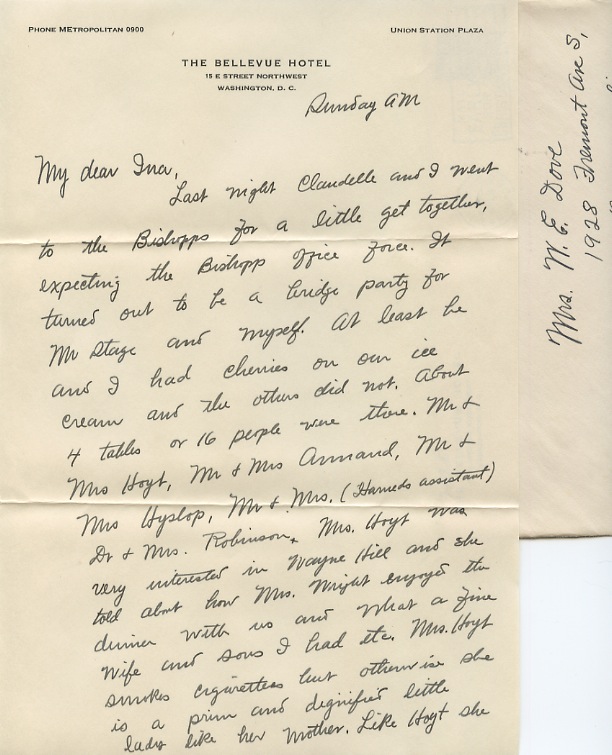 PHONE METROPOLITAN 0900
UNION STATION PLAZA
THE BELLEVUE HOTEL
15 E STREET NORTHWEST
WASHINGTON, D. C.
Sunday AM
My dear Ina,
Last night Claudelle and I went
to the Bishopps for a little get together,
expecting the Bishopp office force. It
turned out to be a bridge party for
Mr Stage and myself. At least he
and I had cherries on our ice
cream and the others did not. About
4 tables or 16 people were there. Mr &
Mrs Hoyt, Mr & Mrs Annand, Mr &
Mrs Hyslop, Mr & Mrs. (Harneds assistant)
Dr & Mrs. Robinson. Mrs. Hoyt was
very interested in Wayne Hill and she
told about how Mrs. Wright enjoyed the
dinner with us and what a fine
wife and sons I had etc. Mrs. Hoyt
smokes cigarettes but otherwise she
is a prim and dignified little
lady like her mother. Like Hoyt she
Mrs. W. E. Dove
1928 Fremont Ave S,